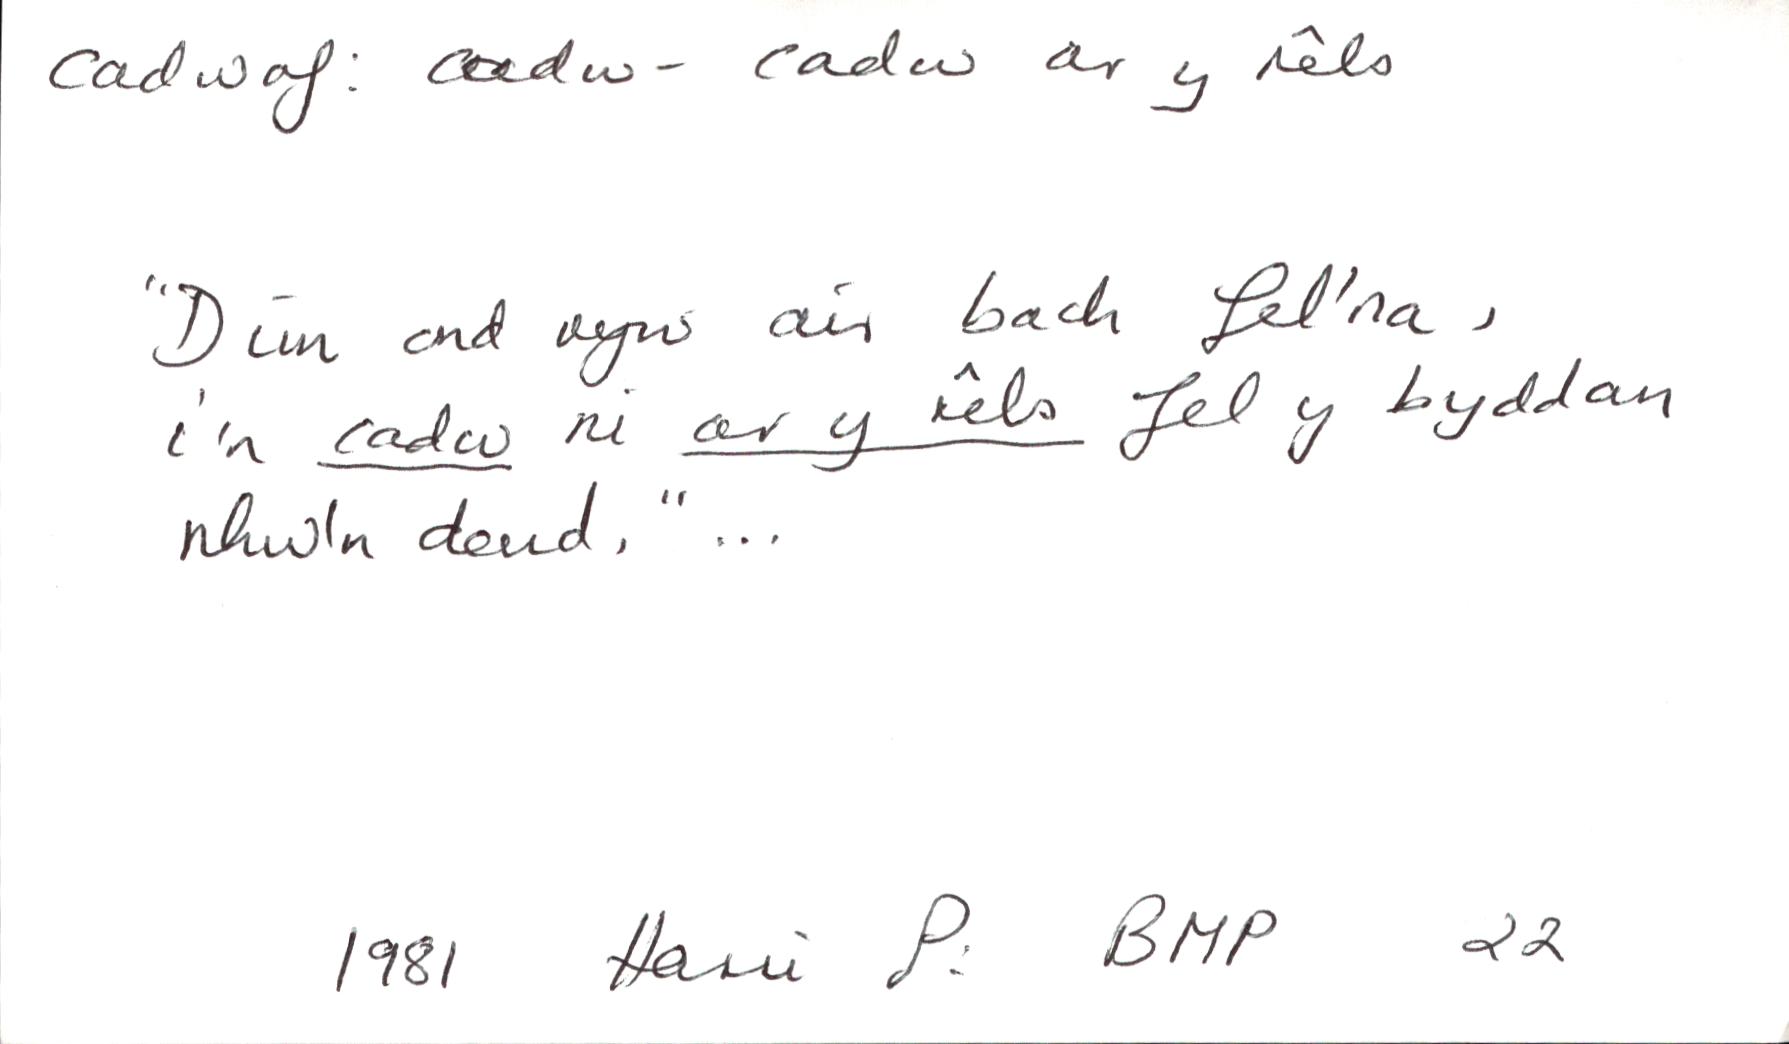 cadwaf: cadw - cadw ar y rêls
"Dim ond rhyw air bach fel'na,
i'n cadw ni ar y rêls fel y byddan
nhw'n deud," ...
1981 Harri P: BMP 22